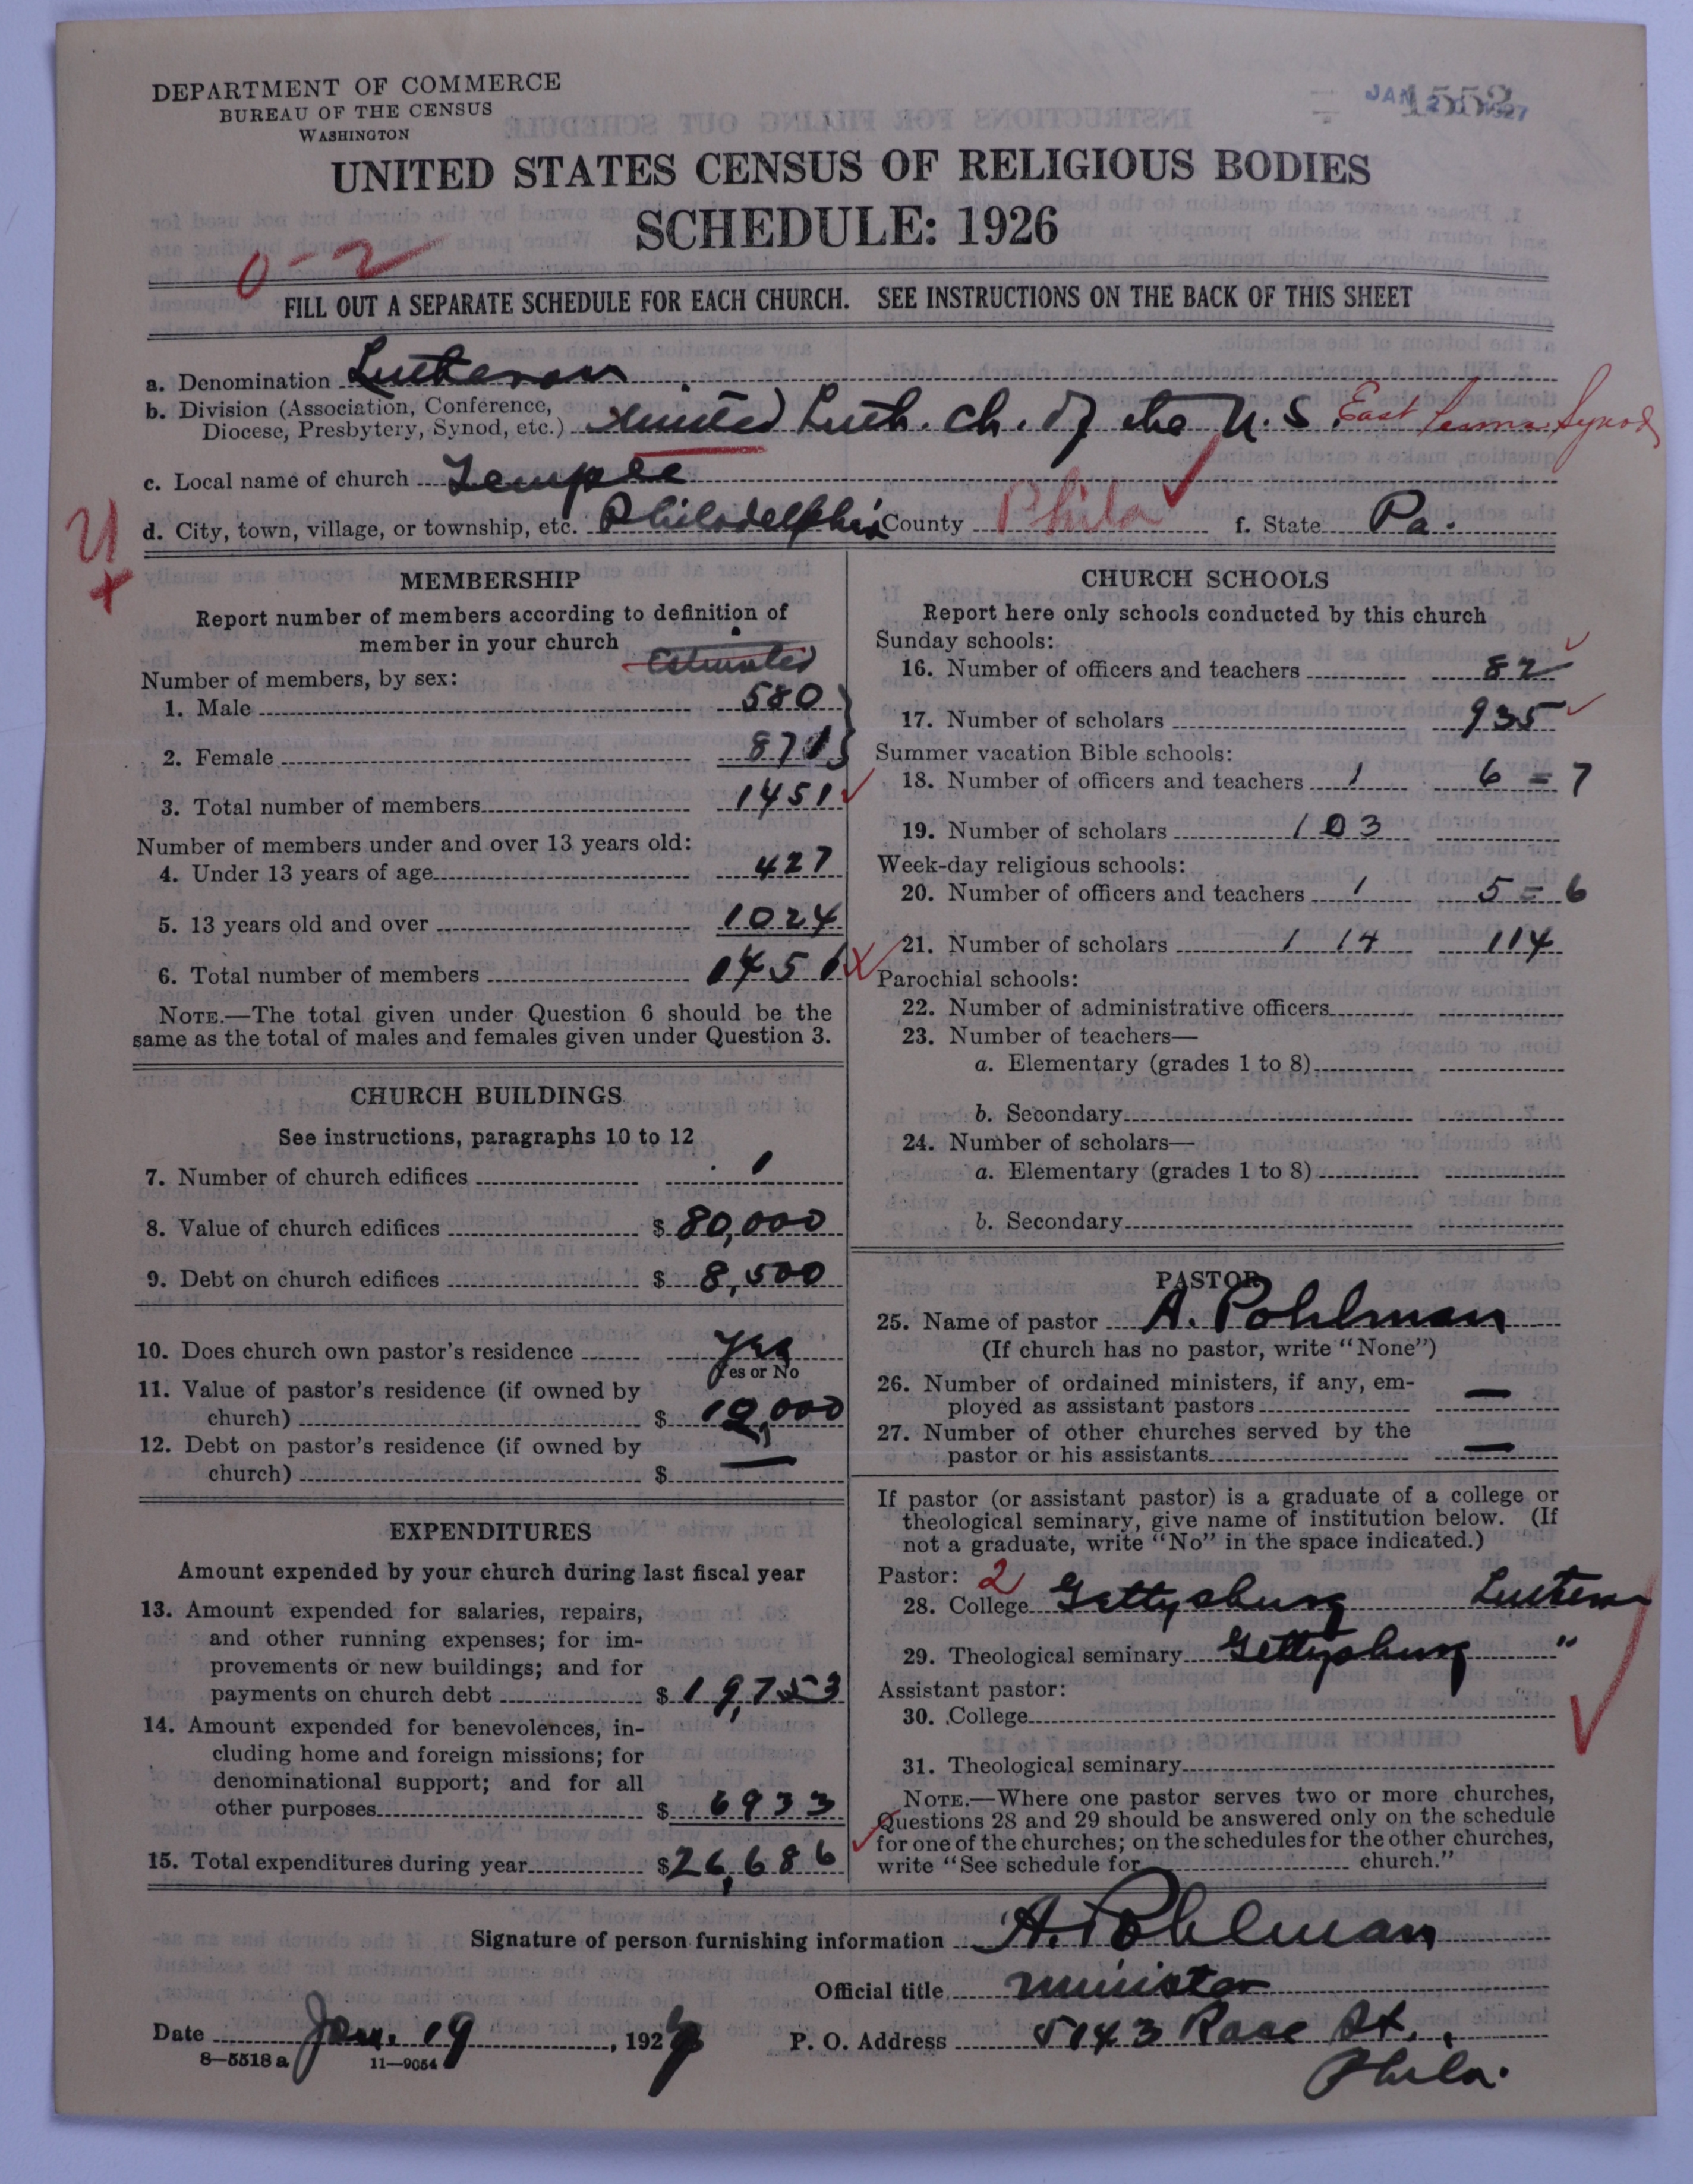 DEPARTMENT OF COMMERCE
BUREAU OF THE CENSUS
WASHINGTON
JAN 1927
1552
UNITED STATES CENSUS OF RELIGIOUS BODIES
SCHEDULE: 1926
0-2
FILL OUT A SEPARATE SCHEDULE FOR EACH CHURCH. SEE INSTRUCTIONS ON THE BACK OF THIS SHEET
a. Denomination Lutheran
b. Division (Association, Conference, Diocese, Presbytery, Synod, etc.) United Luth. Ch. of the U.S. East Penna Synod
c. Local name of church Temple
d. City, town, village, or township, etc. Philadelphia County Phila f. State Pa.
MEMBERSHIP
Report number of members according to definition of
member in your church
Estimated
Number of members, by sex:
1. Male 580
2. Female 871
3. Total number of members 1451
Number of members under and over 13 years old:
4. Under 13 years of age 427
5. 13 years old and over 1024
6. Total number of members 1451
NOTE.—The total given under Question 6 should be the
same as the total of males and females given under Question 3.
CHURCH BUILDINGS
See instructions, paragraphs 10 to 12
7. Number of church edifices 1
8. Value of church edifices $ 80,000
9. Debt on church edifices $ 8,500
10. Does church own pastor's residence Yes
Yes or No
11. Value of pastor's residence (if owned by
church) $ 10,000
12. Debt on pastor's residence (if owned by
church) $ —
EXPENDITURES
Amount expended by your church during last fiscal year
13. Amount expended for salaries, repairs,
and other running expenses; for im-
provements or new buildings; and for
payments on church debt $ 19,753
14. Amount expended for benevolences, in-
cluding home and foreign missions; for
denominational support; and for all
other purposes $ 6933
15. Total expenditures during year $26,686
CHURCH SCHOOLS
Report here only schools conducted by this church
Sunday schools:
16. Number of officers and teachers 82
17. Number of scholars 935
Summer vacation Bible schools:
18. Number of officers and teachers 1 6 = 7
19. Number of scholars 103
Week-day religious schools:
20. Number of officers and teachers 1 5 = 6
21. Number of scholars 114 114
Parochial schools:
22. Number of administrative officers
23. Number of teachers—
a. Elementary (grades 1 to 8)
b. Secondary
24. Number of scholars—
a. Elementary (grades 1 to 8)
b. Secondary
PASTOR
25. Name of pastor A. Pohlman
(If church has no pastor, write "None")
26. Number of ordained ministers, if any, em-
ployed as assistant pastors —
27. Number of other churches served by the
pastor or his assistants —
If pastor (or assistant pastor) is a graduate of a college or
theological seminary, give name of institution below. (If
not a graduate, write "No" in the space indicated.)
Pastor: 2
28. College Gettysburg Lutheran
29. Theological seminary Gettysburg "
Assistant pastor:
30. College
31. Theological seminary
NOTE.—Where one pastor serves two or more churches,
Questions 28 and 29 should be answered only on the schedule
for one of the churches; on the schedules for the other churches,
write "See schedule for church."
Signature of person furnishing information A. Pohlman
Official title minister
Date Jan. 19, 1927 P. O. Address 5143 Race St.,
Phila.
8-5518 a 11-9054